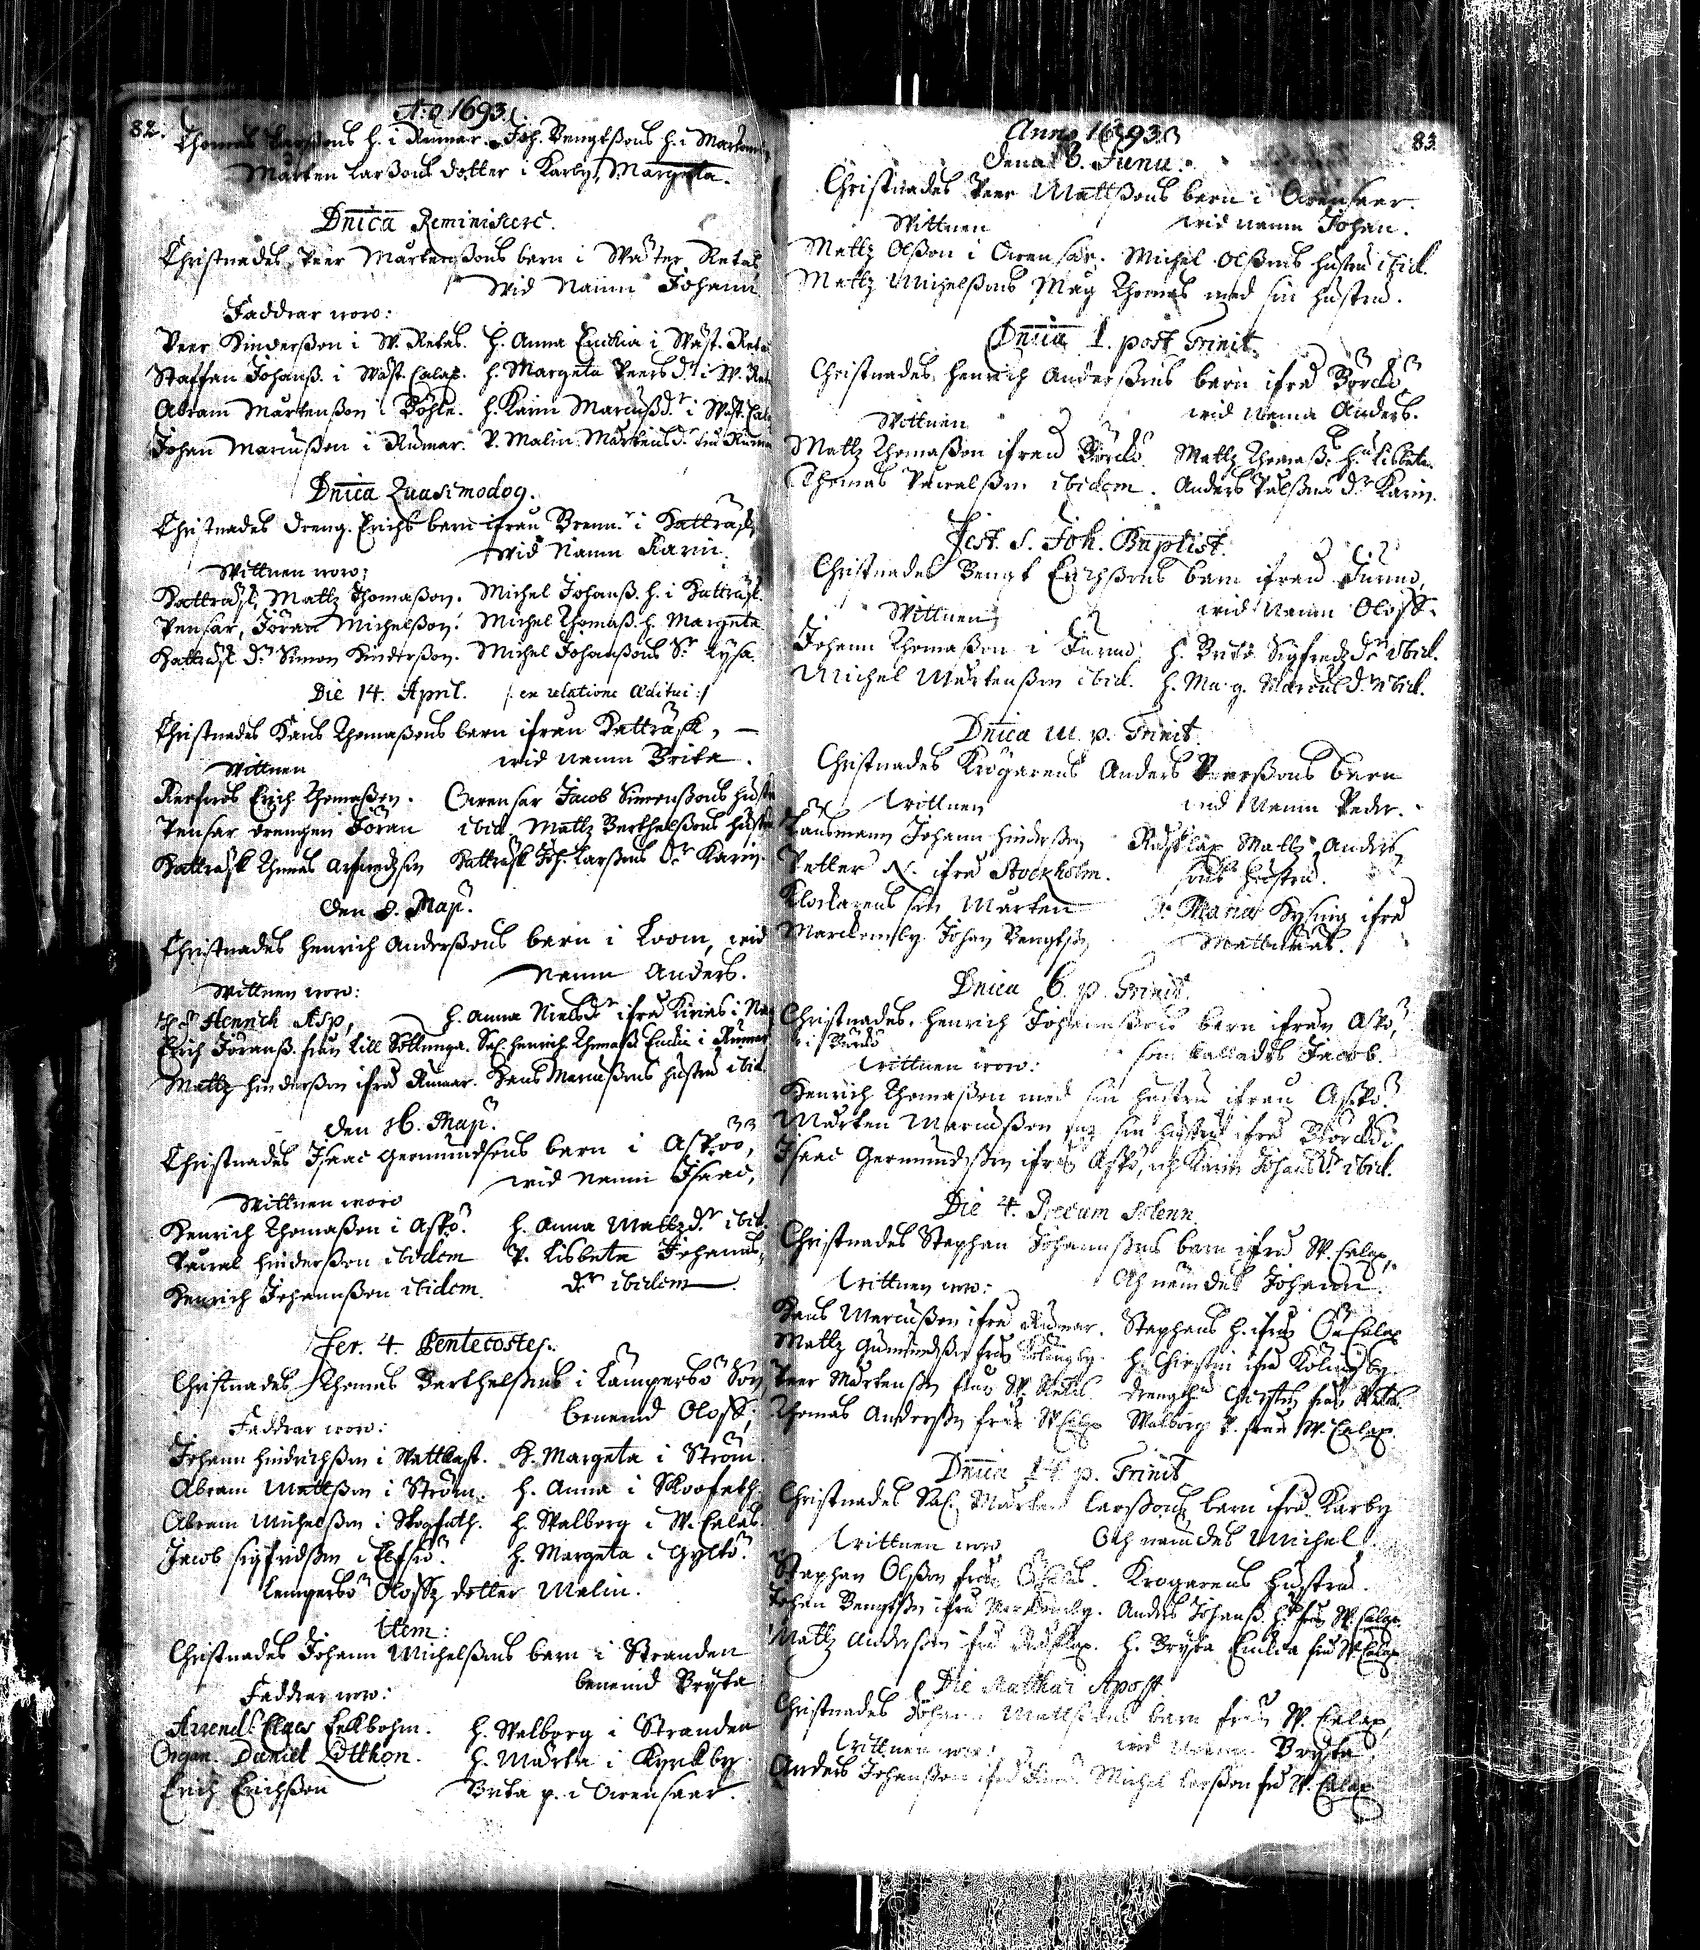 82.
A:o 1693.
Thomas Larßons h. i Rumar. Joh. Bengtßons h. i
Mårten Larßons dotter i Karby, Margeta.
Dnica Reminiscere.
Christnades Peer Mårtenßons barn i Wäster Retas,
wid Namn Johann
Faddrar woro:
Peer Hinderßon i W. Retas. H. Anna Erichia i Wäst. Reta
Staffan Johanß. i Wäst. Calax. H. Margeta Peersd:r i W. Ret
Abram Mårtenßon i Böhle. H. Karin Marcusd:r i Wäst. Cal
Johan Marcusßon i Rumar. P. Malin Mårtensd:r
Dnica Quasimodog.
Christnades dreng. Erichs barn ifrån Brenn. i Katträsk,
wid Namn Karin.
Wittnen woro:
Katträsk, Mattz Thomaßon. Michel Johanß. h. i Katträsk.
Pensar, Jöran Michelßon. Michel Thomaß. h. Margeta
Katträsk d:n Simon Hinderßon. Michel Johanßons S:r Lysa.
Die 14. April. /: ex relatione æditui :/
Christnades Hans Thomaßons barn ifrån Katträsk,
wid namn Brita.
Wittnen
Erich Thomaßon. Awensar Jacob Simonßons hustru
Pensar drengen Jöran ibid. Mattz Berthelßons hustru
Katträsk Thomas Katträsk Joh. Larßons d:r Karin.
Den 8. Maji.
Christnades Henrich Anderßons barn i Loom, wid
Namn Anders.
Wittnen woro:
Henrich Asp, H. Anna Nielsd:r ifrå Kirias i Na
Erich Jöranß. från Lill Söltunga. Henrich Thomaß. i Rumar
Mattz Hinderßon ifrå Rumar. Hans Marcusßons hustru ibid.
Den 16. Maji.
Christnades Isaac Germundßons barn i Aspöö,
wid namn Isaac,
Wittnen woro
Henrich Thomaßon i Aspö. H. Anna Mattzd:r ibid.
Påwal Hinderßon ibidem P. Lisbeta Johans-
Henrich Johanßon ibidem. d:r ibidem
Fer. 4. Pentecostes.
Christnades Thomas Berthelßons i Lampersö Son,
benemd Oloff,
Faddrar woro:
Johann Hindrichßon i Wattkast. H. Margeta i Ström.
Abram Mattßon i Ström. H. Anna i Skogfath.
Abram Michelßon i Skogfath. H. Walborg i W. Calax.
Jacob Sigfredßon i Elfsiö. H. Margeta i Gyltö.
Lampersö Oloffz dotter Malin.
Item:
Christnades Johann Michelßons barn i Stranden
benemd Bryta
Faddrar woro:
Arrend. Claes Eekbohm. H. Walborg i Stranden
Organ. Daniel Litthon. H. Märta i Kyrkby
Erich Erichßon Brita p. i Awensaar.
83
Anno 1693.
Den 8. Junii.
Christnades Peer Mattßons barn i Awensaar.
Wittnen wid namn Johan.
Mattz Olßon i Awensar. Michel Olßons hustru ibid.
Mattz Michelßons Måg Thomas med sin hustru.
Dnica 1. post Trinit.
Christnades Henrich Anderßons barn ifrå Börckö,
Wittnen wid namn Anders.
Mattz Thomaßon ifrån Börckö. Mattz Thomaß. h. Lisbeta.
Thomas Påwalßon ibidem. Anders Pålßons d:r Karin.
Fest. S. Joh. Baptist.
Christnades Bengt Erichßons barn ifrån Jurmo,
Wittnen wid Namn Oloff.
Johann Thomaßon i Jurmo. H. Brita Sigfredzd:r ibid.
Michel Mårtenßon ibid. H. Marg. Marcusd:r ibid.
Dnica III. p. Trinit.
Christnades Krögarens Anders Peerßons barn
Wittnen wid Namn Peder.
Länsman Johann Hinderßon Rosklax Mattz Anders-
Petter N. ifrå Stockholm. sons hustru.
Klockarens son Mårten J. Maria Kysing ifrå
Markomby Johan Bengtßon
Dnica 6. p. Trinit.
Christnades Henrich Johanßons barn ifrån Aspö,
i Börckö
Wittnen woro: som kallades Jacob.
Henrich Thomaßon med sin hustru ifrån Aspö.
Mårten Marcusßon och sin hustru ifrå Börckö.
Isaac Germundßon ifrån Aspö, och Karin Johansd:r ibid.
Die 4. Precum Solenn.
Christnades Stephan Johanßons barn ifrå W. Calax,
Wittnen woro: Och nämdes Johann.
Hans Marcusßon ifrå Rumar. Stephans h. ifrån Calax
Mattz Gumundßon från Kölingby. H. Chirstin ifrå Kölingby.
Peer Mårtenßon från W. Retas. Chirstin från Retas.
Thomas Anderßon från W. Calax Walborg P. från W. Calax.
Dnica 14. p. Trinit.
Christnades Mårten Larßons barn ifrå Karby
Wittnen woro Och nämdes Michel.
Stephan Olßon från Krögarens hustru.
Johan Bengtßon ifrå Markomby. Anders Johanß. h. från W. Calax.
Mattz Anderßon ifrå Rosklax. H. Bryta Erichia från W. Calax
Die Mathæi Apost.
Christnades Johann Mattßons barn från W. Calax,
Wittnen woro: wid namn Bryta.
Anders Johanßon ifrå Michel Larßon frå W. Calax